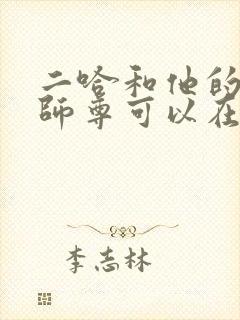 二哈和他的
師尊可以在
李志林